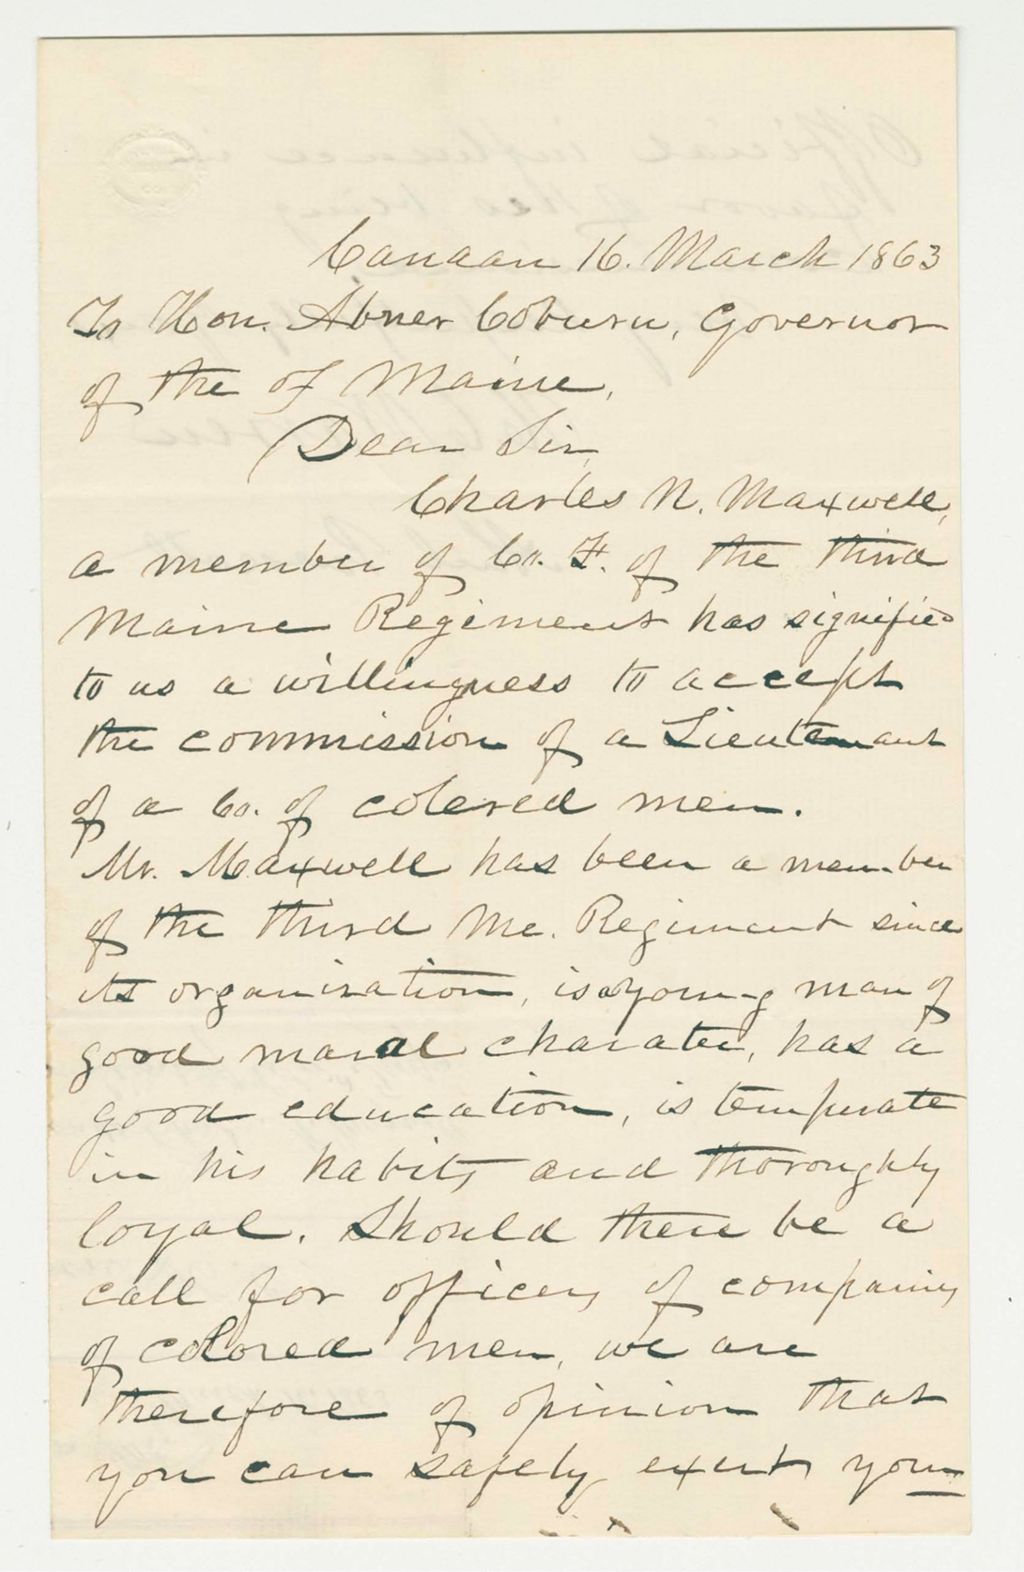 Canaan 16. March 1863
To Hon. Abner Coburn, Governor
of the of Maine,
Dear Sir,
Charles N. Maxwell,
a member of Co. F. of the third
Maine Regiment has signified
to us a willingness to accept
the commission of a Lieutenant
of a Co. of colered men.
Mr. Maxwell has been a member
of the third Me. Regiment since
its organization, is a young man of
good moral charater, has a
good education, is temperate
in his habits and thoroughly
loyal. Should there be a
call for officers of companies
of colored men, we are
therefore of opinion that
you can safely exert your